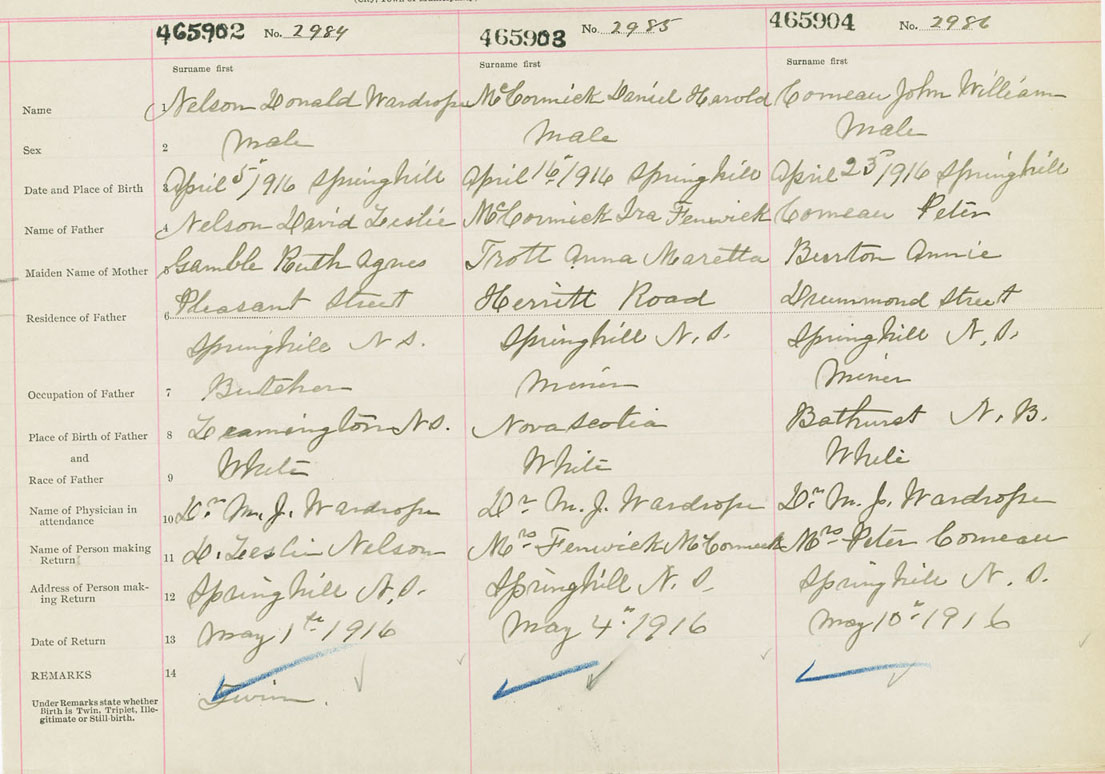 465902 No. 2984 465903 No. 2985 465904 No. 2986
Surname first Surname first Surname first
Name 1 Nelson Donald Wardrope McCormick Daniel Harold Comeau John William
Sex 2 Male Male Male
Date and Place of Birth 3 April 5th/916 Springhill April 16th/916 Springhill April 23rd/916 Springhill
Name of Father 4 Nelson David Leslie McCormick Ira Fenwick Comeau Peter
Maiden Name of Mother 5 Gamble Ruth Agnes Trott Anna Maretta Burton Annie
Residence of Father 6 Pleasant Street Herritt Road Drummond Street
Springhill N S. Springhill N. S. Springhill N. S.
Occupation of Father 7 Butcher Miner Miner
Place of Birth of Father 8 Leamington N S. Nova Scotia Bathurst N. B.
and
Race of Father 9 White White White
Name of Physician in
attendance 10 Dr. M. J. Wardrope Dr M. J. Wardrope Dr. M. J. Wardrope
Name of Person making
Return 11 D. Leslie Nelson Mrs Fenwick McCormick Mrs Peter Comeau
Address of Person mak-
ing Return 12 Springhill N. S. Springhill N. S. Springhill N. S.
Date of Return 13 May 1th 1916 May 4th 1916 May 10th 1916
REMARKS 14
Under Remarks state whether
Birth is Twin, Triplet, Ille-
gitimate or Still-birth.
Twin.